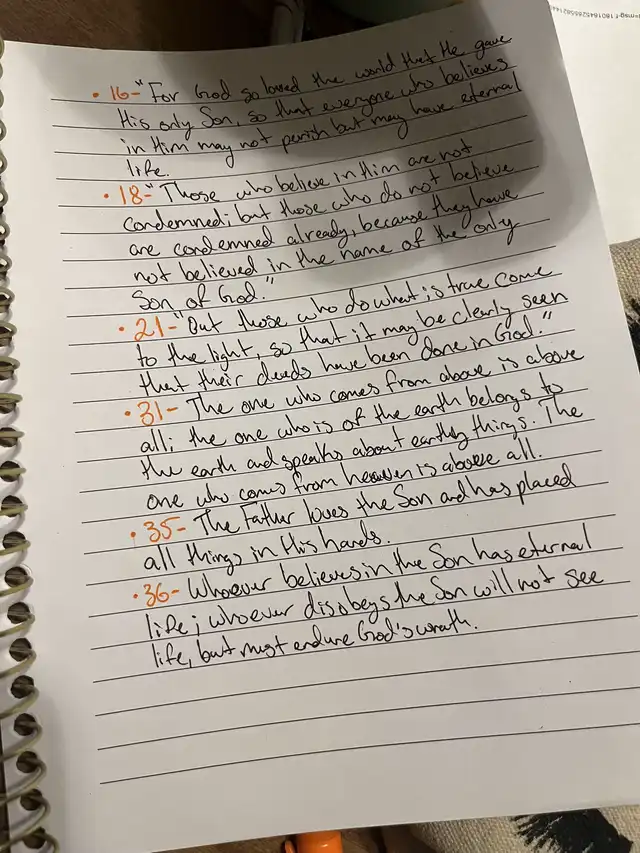 • 16- "For God so loved the world that He gave
His only Son, so that everyone who believes
in Him may not perish but may have eternal
life.
• 18- "Those who believe in Him are not
condemned; but those who do not believe
are condemned already, because they have
not believed in the name of the only
Son of God."
• 21- "But those who do what is true come
to the light, so that it may be clearly seen
that their deeds have been done in God."
• 31- The one who comes from above is above
all; the one who is of the earth belongs to
the earth and speaks about earthly things. The
one who comes from heaven is above all.
• 35- The Father loves the Son and has placed
all things in His hands.
• 36- Whoever believes in the Son has eternal
life; whoever disobeys the Son will not see
life, but must endure God's wrath.